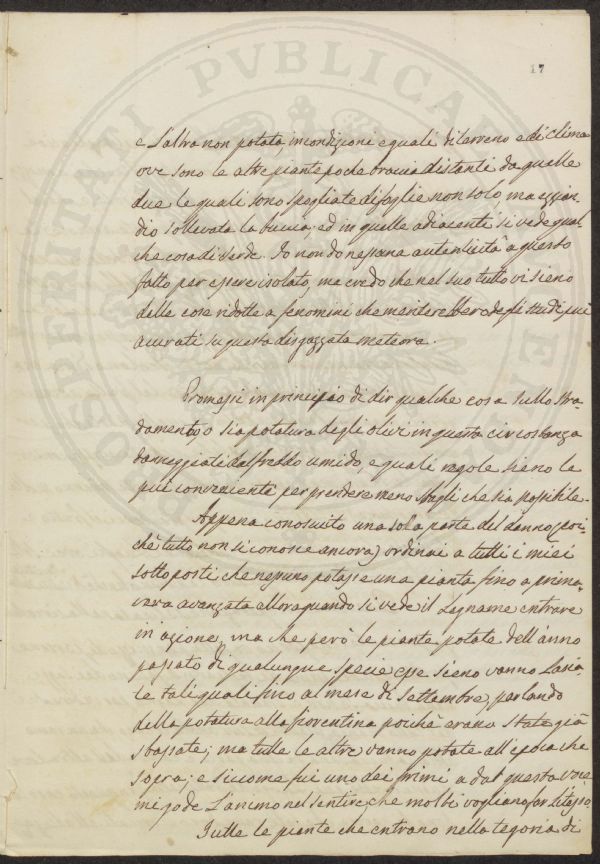 17
e l'altra non potata, in condizioni eguali di terreno e di clima
ove sono le altre piante poche braccia distanti da quelle
due le quali sono spogliate di foglie non solo, ma ezian-
dio sollevata la buccia; ed in quelle adiacenti si vede qual-
che cosa di verde. Io non do nessuna autenticità a questo
fatto per essere isolato, ma credo che nel suo tutto vi sieno
delle cose ridotte a fenomini che meriterebbero degli studi più
acurati su questa disgazzata meteora.
Promessi in principio di dir qualche cosa sullo stra-
damento, o sia potatura degli olivi in questa circostanza
danneggiati dal freddo umido, e quali regole sieno le
più convenienti per prendere meno sbagli che sia possibile.
Appena conosciuto una sola parte del danno (poi-
chè tutto non si conosce ancora) ordinai a tutti i miei
sottoposti che nessuno potasse una pianta fino a prima-
vera avanzata allora quando si vede il Legname entrare
in azione, ma che però le piante potate dell'anno
passato di qualunque specie esse sieno vanno lascia-
te tali quali fino al mese di Settembre, parlando
della potatura alla fiorentina poichè erano state già
sbassate; ma tutte le altre vanno potate all'epoca che
sopra; e siccome fui uno dei primi a dar questa voce
mi gode l'animo nel sentire, che molti vogliono far l'istesso
Tutte le piante che entrano nella tegoria di
PROSPERITATI PVBLICAE